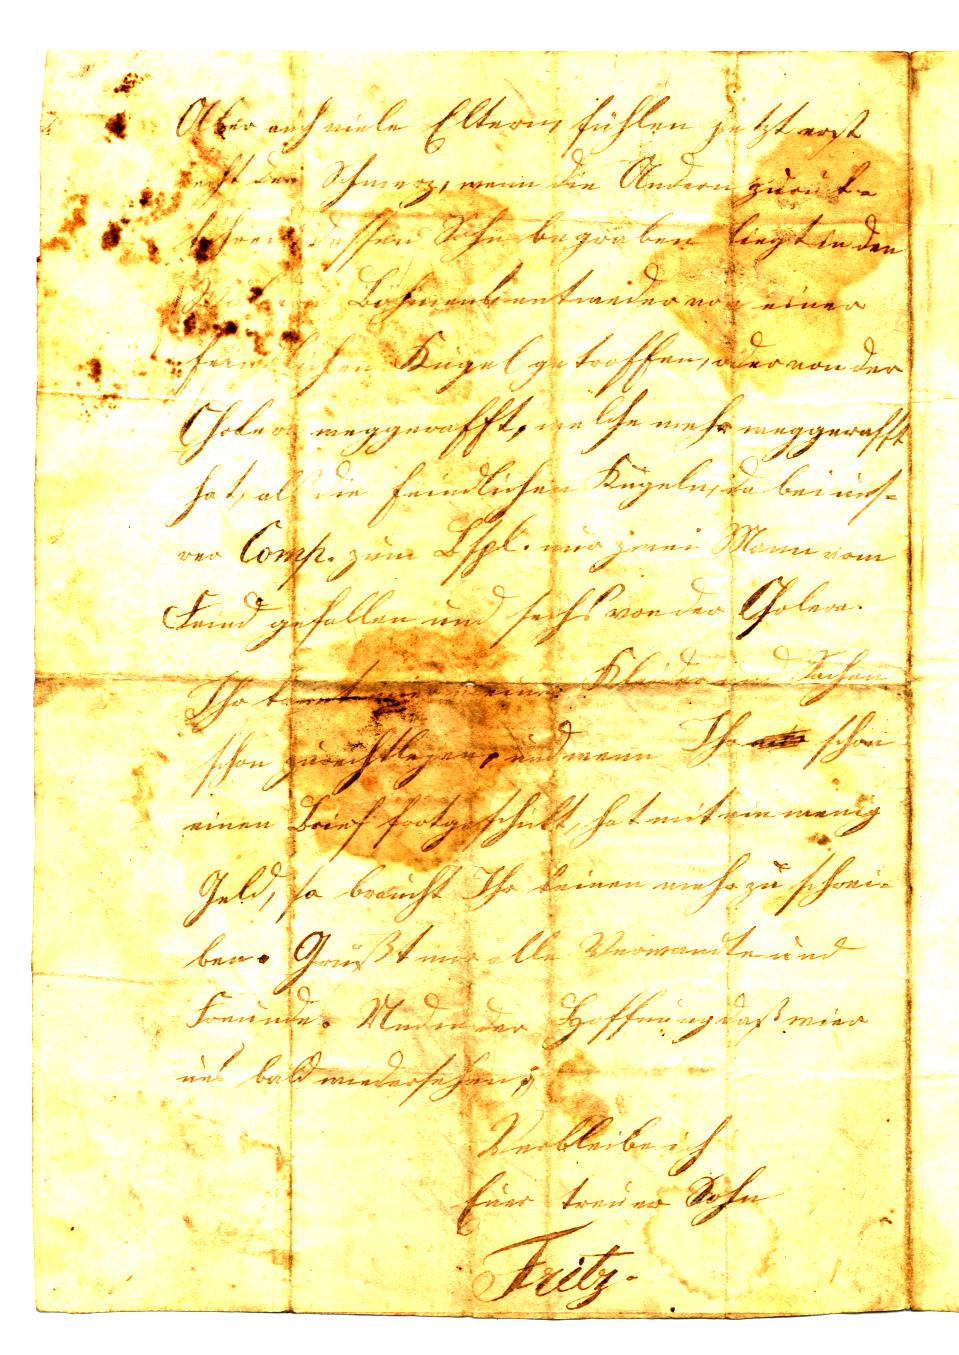 Aber auch viele Eltern, fühlen jetzt erst
recht den Schmerz, wenn die Andern zurük-
kehren, dessen Sohn begraben liegt in den
Böhmens entweder von einer
feindlichen Kugel getroffen, oder von der
Cholera weggerafft, welche mehr weggerafft
hat, als die feindlichen Kugeln, da bei uns-
rer Comp. zum Bspl. nur zwei Mann vom
Feind gefallen und sechs von der Cholera.
Ihr Kleider und Sachen
schon zurechtlegen, und wenn Ihr schon
einen Brief fortgeschickt, hat mit ein wenig
Geld, so braucht Ihr keinen mehr zu schrei-
ben. Grüßt mir alle Verwandte und
Freunde. der Hoffnung daß wier
uns bald wiedersehen,
Verbleibe ich
Euer treuer Sohn
Fritz.